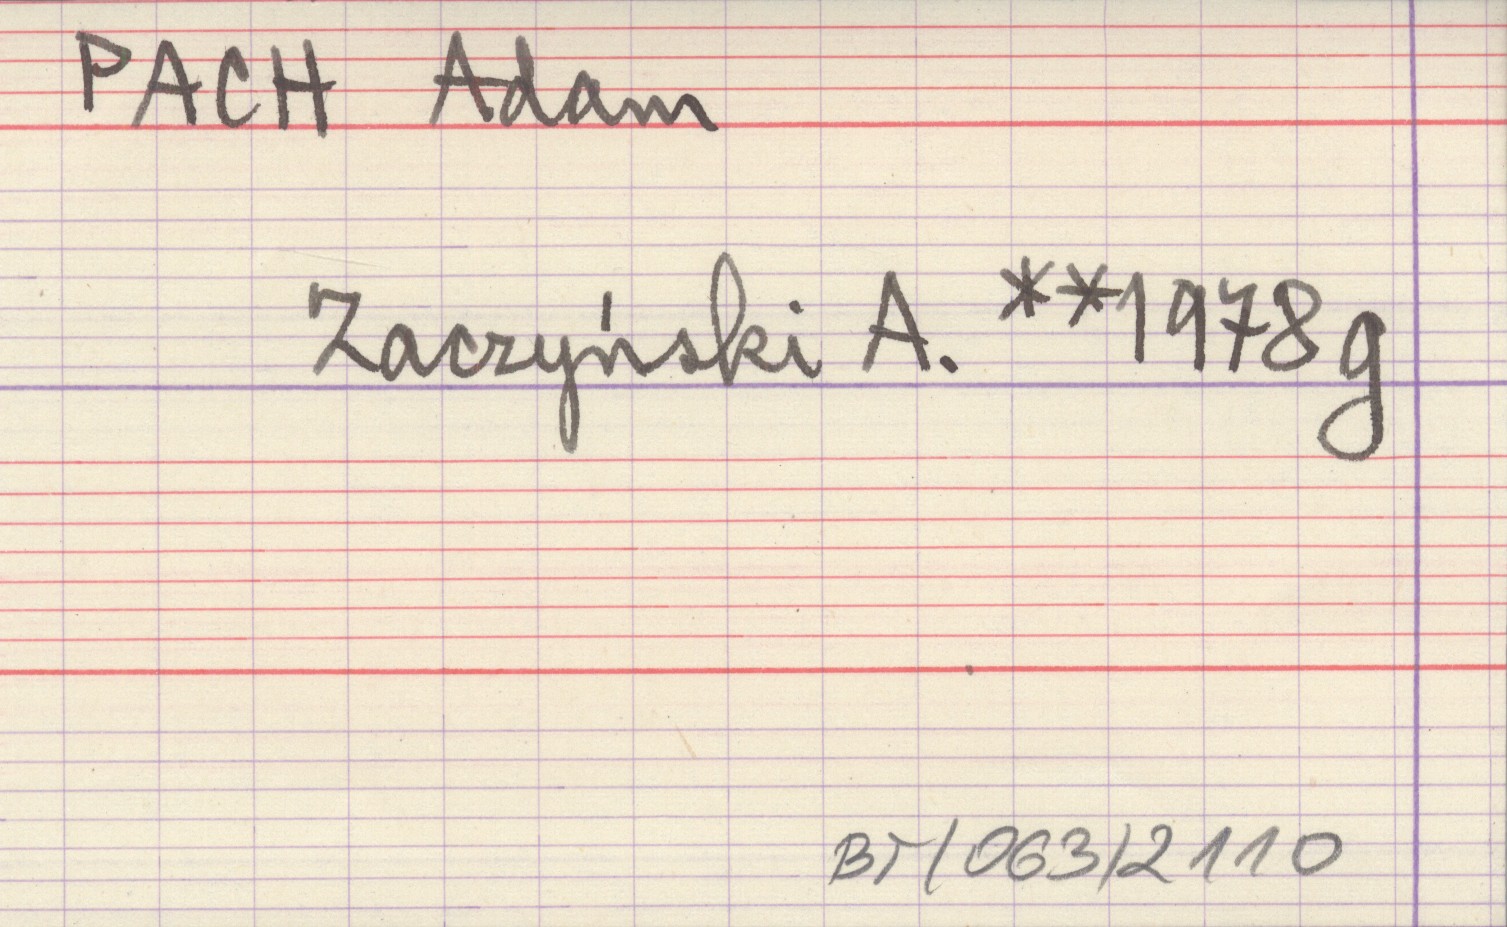 PACH Adam
Zaczyński A. **1978g
BT/063/2110